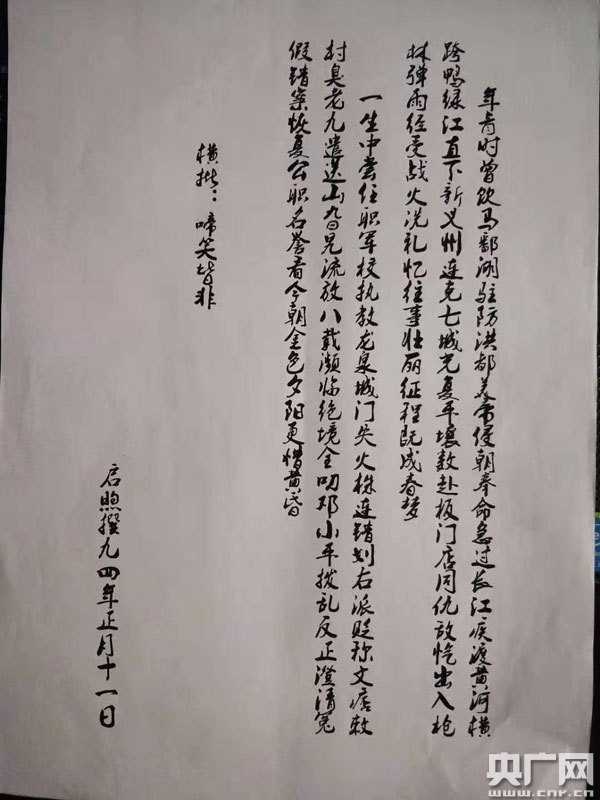 年青时曾饮马鄱湖驻防洪都美帝侵朝奉命急过长江疾渡黄河横
跨鸭绿江直下新义州连克七城光复平壤数赴板门店同仇敌忾出入枪
林弹雨经受战火洗礼忆往事壮丽征程既成春梦
一生中尝任职军校执教龙泉城门失火株连错划右派贬称文痞敕
村臭老九遣送山旮旯流放八载濒临绝境全叨邓小平拨乱反正澄清冤
假错案恢复公职名誉看今朝金色夕阳更惜黄昏
横批：啼笑皆非
启煦撰九四年正月十一日
央广网
www.cnr.cn